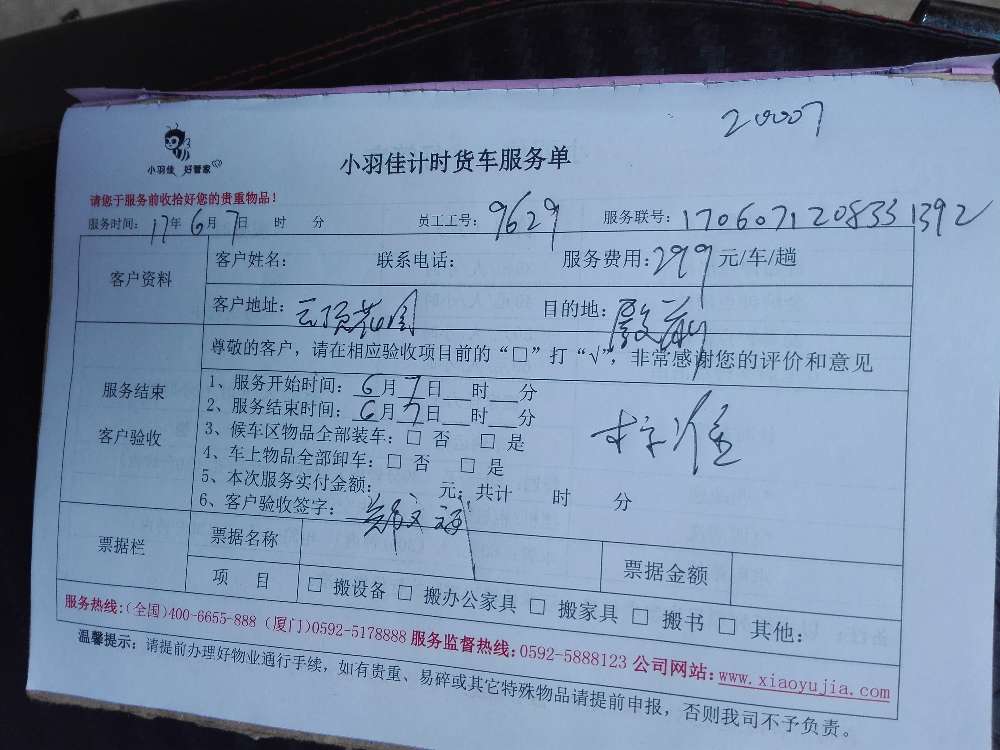 20007
小羽佳 好管家
小羽佳计时货车服务单
请您于服务前收拾好您的贵重物品！
服务时间：17年6月7日 时 分 员工工号：9629 服务联号：1706071208331392
客户资料
客户姓名： 联系电话： 服务费用：299元/车/趟
客户地址：云顶花园 目的地：殿前
尊敬的客户，请在相应验收项目前的“□”打“√”，非常感谢您的评价和意见
服务结束
客户验收
1、服务开始时间：6月7日__时__分
2、服务结束时间：6月7日__时__分
3、候车区物品全部装车：□ 否 □ 是
4、车上物品全部卸车：□ 否 □ 是
5、本次服务实付金额： 元；共计 时 分
6、客户验收签字：
票据栏
票据名称 票据金额
项 目 □ 搬设备 □ 搬办公家具 □ 搬家具 □ 搬书 □ 其他：
服务热线：（全国）400-6655-888（厦门）0592-5178888 服务监督热线：0592-5888123 公司网站：www.xiaoyujia.com
温馨提示：请提前办理好物业通行手续，如有贵重、易碎或其它特殊物品请提前申报，否则我司不予负责。